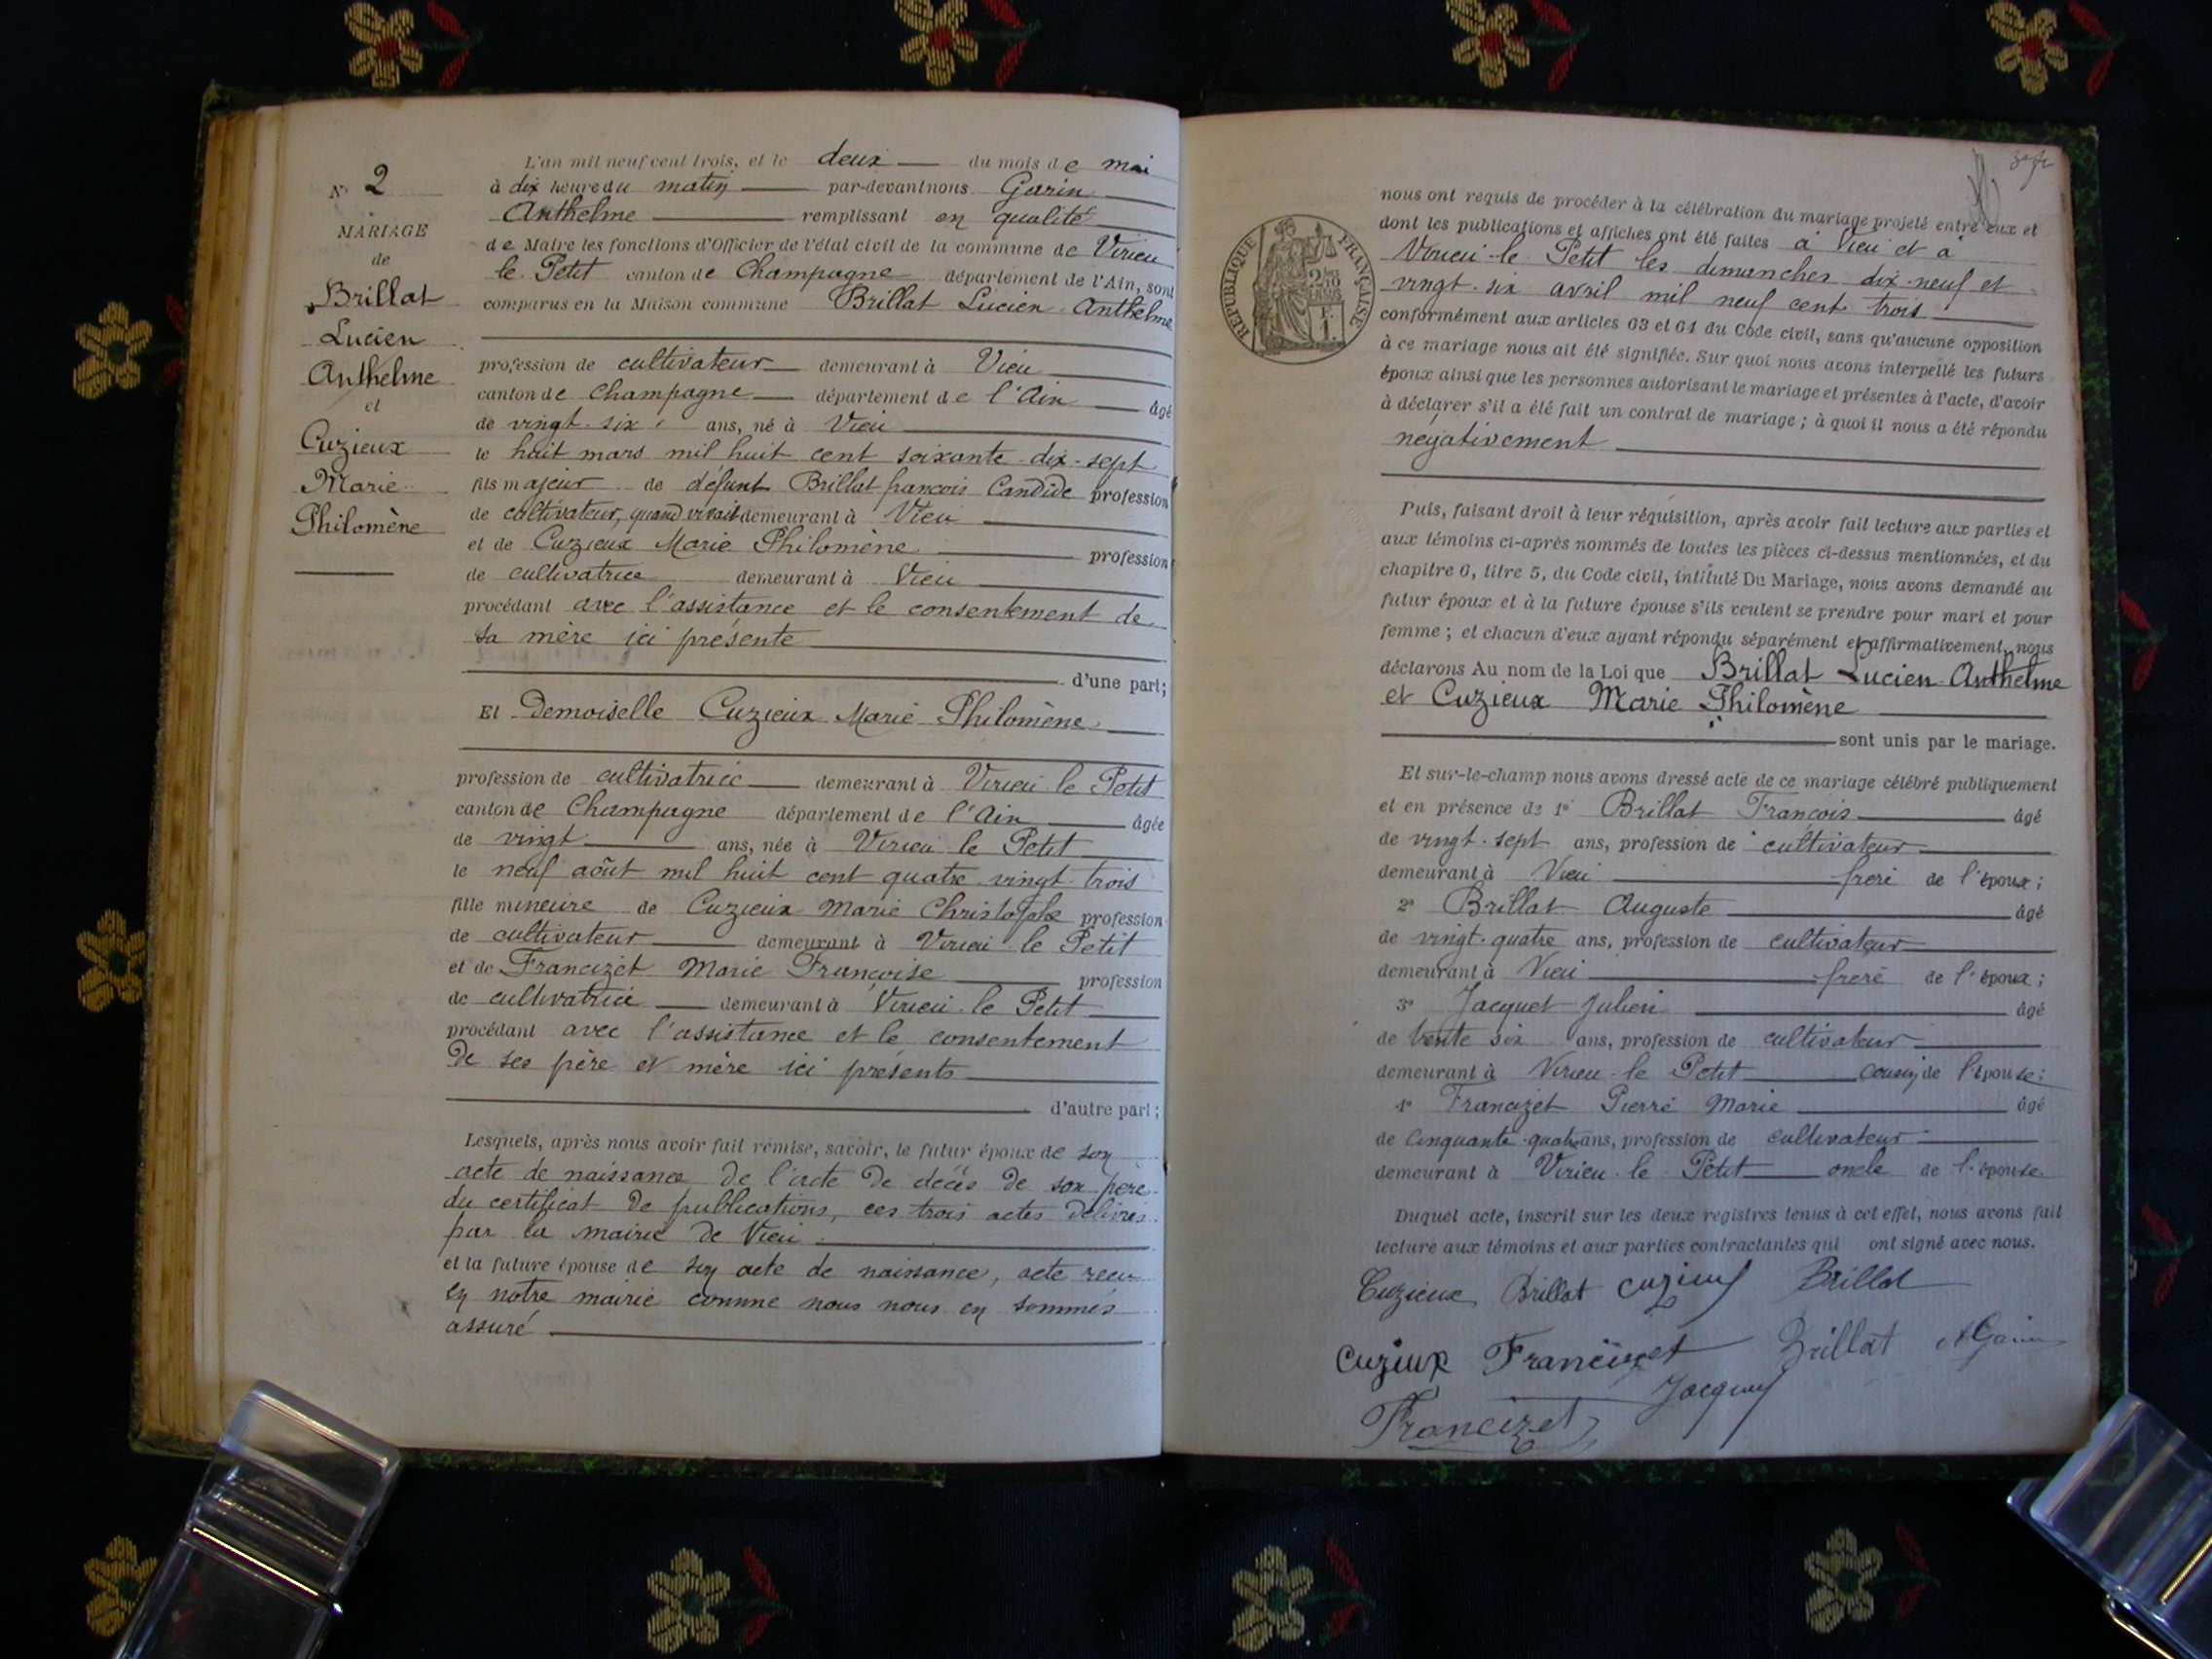 N° 2
MARIAGE
de
Brillat
Lucien
Anthelme
et
Cuzieux
Marie
Philomène
L'an mil neuf cent trois, et le deux du mois de mai
à dix heure du matin par-devant nous Garin
Anthelme remplissant en qualité
de Maire les fonctions d'Officier de l'état civil de la commune de Virieu
le Petit canton de Champagne département de l'Ain, sont
comparus en la Maison commune Brillat Lucien Anthelme
profession de cultivateur demeurant à Vieu
canton de Champagne département de l'Ain âgé
de vingt-six ans, né à Vieu
le huit mars mil huit cent soixante-dix-sept
fils majeur de défunt Brillat françois Candide profession
de cultivateur, quand vivait demeurant à Vieu
et de Cuzieux Marie Philomène profession
de cultivatrice demeurant à Vieu
procédant avec l'assistance et le consentement de
sa mère ici présente
d'une part;
Et Demoiselle Cuzieux Marie Philomène
profession de cultivatrice demeurant à Virieu le Petit
canton de Champagne département de l'Ain âgée
de vingt ans, née à Virieu le Petit
le neuf août mil huit cent quatre-vingt trois
fille mineure de Cuzieux Marie Christophe profession
de cultivateur demeurant à Virieu-le Petit
et de Francizet Marie Françoise profession
de cultivatrice demeurant à Virieu-le Petit
procédant avec l'assistance et le consentement
de ses père et mère ici présents
d'autre part;
Lesquels, après nous avoir fait remise, savoir, le futur époux de son
acte de naissance de l'acte de décès de son père
du certificat de publications, ces trois actes délivrés
par la mairie de Vieu
et la future épouse de son acte de naissance, acte reçu
en notre mairie comme nous nous en sommes
assuré
RÉPUBLIQUE FRANÇAISE
nous ont requis de procéder à la célébration du mariage projeté entre eux et
dont les publications et affiches ont été faites à Vieu et à
Virieu-le Petit les dimanches dix-neuf et
vingt-six avril mil neuf cent trois
conformément aux articles 63 et 64 du Code civil, sans qu'aucune opposition
à ce mariage nous ait été signifiée. Sur quoi nous avons interpellé les futurs
époux ainsi que les personnes autorisant le mariage et présentes à l'acte, d'avoir
à déclarer s'il a été fait un contrat de mariage; à quoi il nous a été répondu
négativement
Puis, faisant droit à leur réquisition, après avoir fait lecture aux parties et
aux témoins ci-après nommés de toutes les pièces ci-dessus mentionnées, et du
chapitre 6, titre 5, du Code civil, intitulé Du Mariage, nous avons demandé au
futur époux et à la future épouse s'ils veulent se prendre pour mari et pour
femme; et chacun d'eux ayant répondu séparément et affirmativement, nous
déclarons Au nom de la Loi que Brillat Lucien-Anthelme
et Cuzieux Marie Philomène
sont unis par le mariage.
Et sur-le-champ nous avons dressé acte de ce mariage célébré publiquement
et en présence de 1° Brillat François âgé
de vingt-sept ans, profession de cultivateur
demeurant à Vieu frère de l'époux;
2° Brillat Auguste âgé
de vingt-quatre ans, profession de cultivateur
demeurant à Vieu frère de l'époux;
3° Jacquet Julien âgé
de trente six ans, profession de cultivateur
demeurant à Virieu-le Petit cousin de l'épouse;
4° Francizet Pierre Marie âgé
de Cinquante-quatre ans, profession de cultivateur
demeurant à Virieu-le-Petit oncle de l'épouse
Duquel acte, inscrit sur les deux registres tenus à cet effet, nous avons fait
lecture aux témoins et aux parties contractantes qui ont signé avec nous.
Cuzieux Brillat Cuzieux Brillat
Cuzieux Francizet Brillat A Garin
Jacquet
Francizet